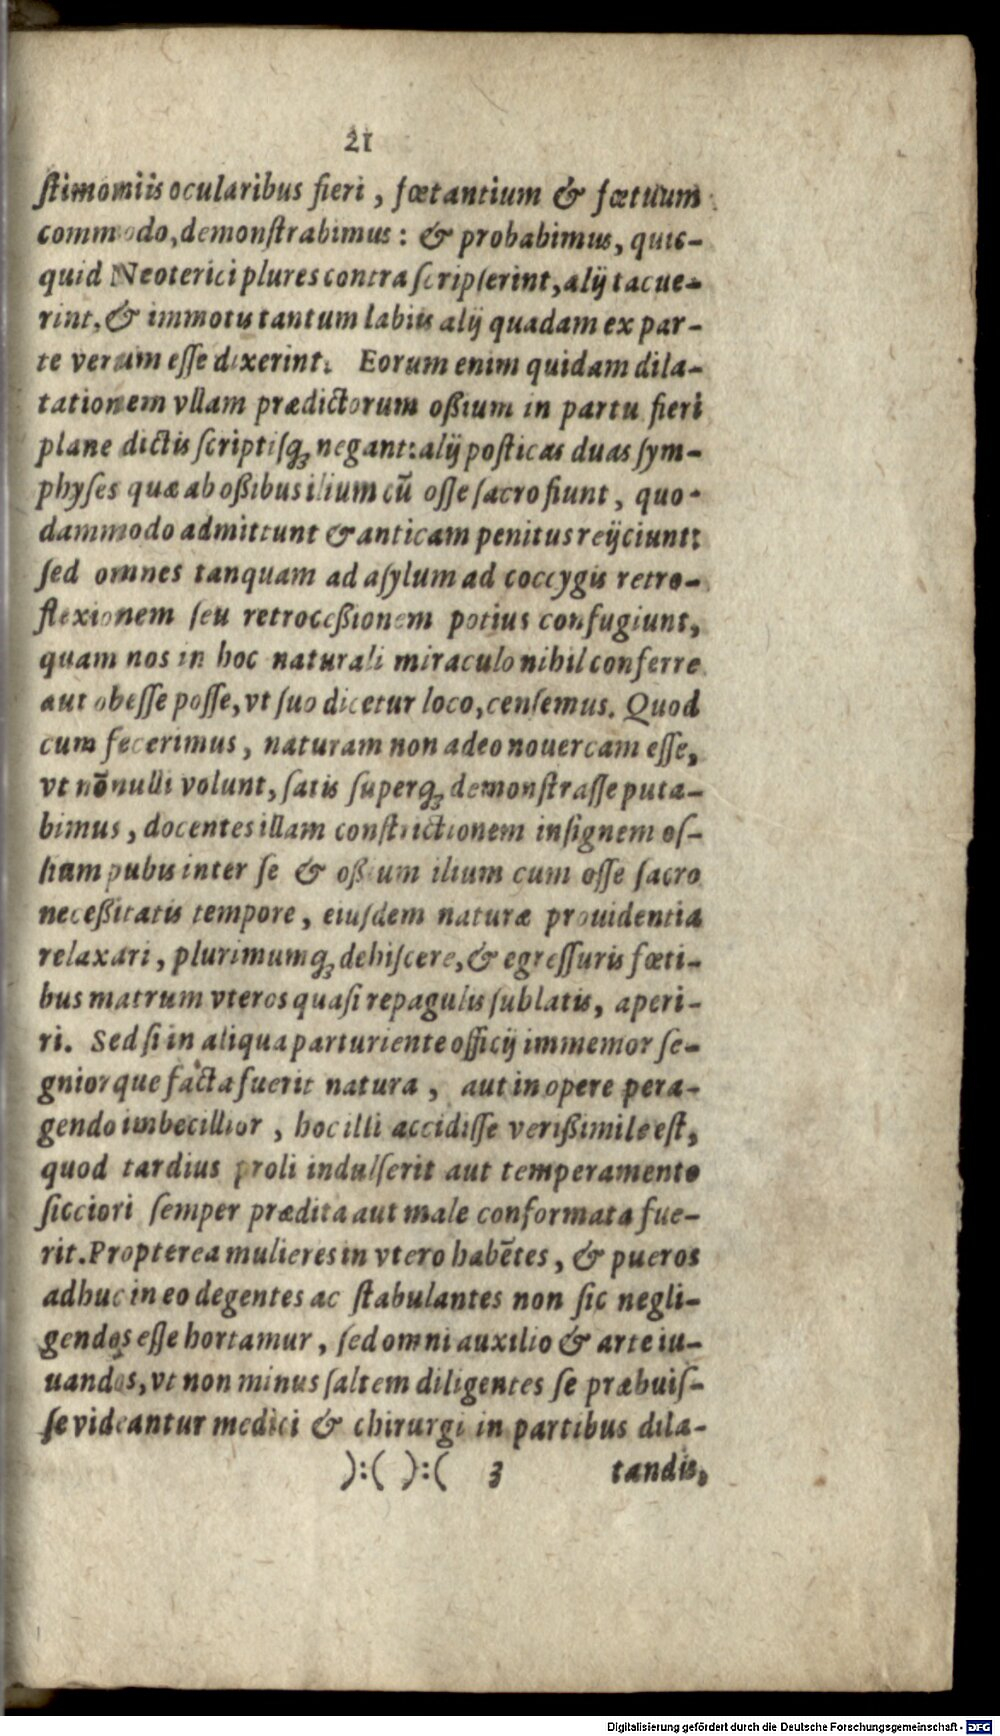 21
ſtimoniis ocularibus fieri, fœtantium & fœtuum
commodo, demonſtrabimus: & probabimus, quic-
quid Neoterici plures contra ſcripſerint, alij tacue-
rint, & immotis tantum labiis alij quadam ex par-
te verum eſſe dixerint. Eorum enim quidam dila-
tationem vllam prædictorum oßium in partu fieri
plane dictis ſcriptiſq; negant: alij poſticas duas ſym-
phyſes quæ ab oßibus ilium cū oſſe ſacro fiunt, quo-
dammodo admittunt & anticam penitus reijciunt:
ſed omnes tanquam ad aſylum ad coccygis retro-
flexionem ſeu retroceßionem potius confugiunt,
quam nos in hoc naturali miraculo nihil conferre
aut obeſſe poſſe, vt ſuo dicetur loco, cenſemus. Quod
cum fecerimus, naturam non adeo nouercam eſſe,
vt nōnulli volunt, ſatis ſuperq; demonſtraſſe puta-
bimus, docentes illam conſtrictionem inſignem oſ-
ſium pubis inter ſe & oßium ilium cum oſſe ſacro
neceßitatis tempore, eiuſdem naturæ prouidentia
relaxari, plurimumq; dehiſcere, & egreſſuris fœti-
bus matrum vteros quaſi repagulis ſublatis, aperi-
ri. Sed ſi in aliqua parturiente officij immemor ſe-
gniorque facta fuerit natura, aut in opere pera-
gendo imbecillior, hoc illi accidiſſe verißimile eſt,
quod tardius proli indulſerit aut temperamento
ſicciori ſemper prædita aut male conformata fue-
rit. Propterea mulieres in vtero habētes, & pueros
adhuc in eo degentes ac ſtabulantes non ſic negli-
gendos eſſe hortamur, ſed omni auxilio & arte iu-
uandos, vt non minus ſaltem diligentes ſe præbuiſ-
ſe videantur medici & chirurgi in partibus dila-
):( ):( 3 tandis,
Digitalisierung gefördert durch die Deutsche Forschungsgemeinschaft - DFG